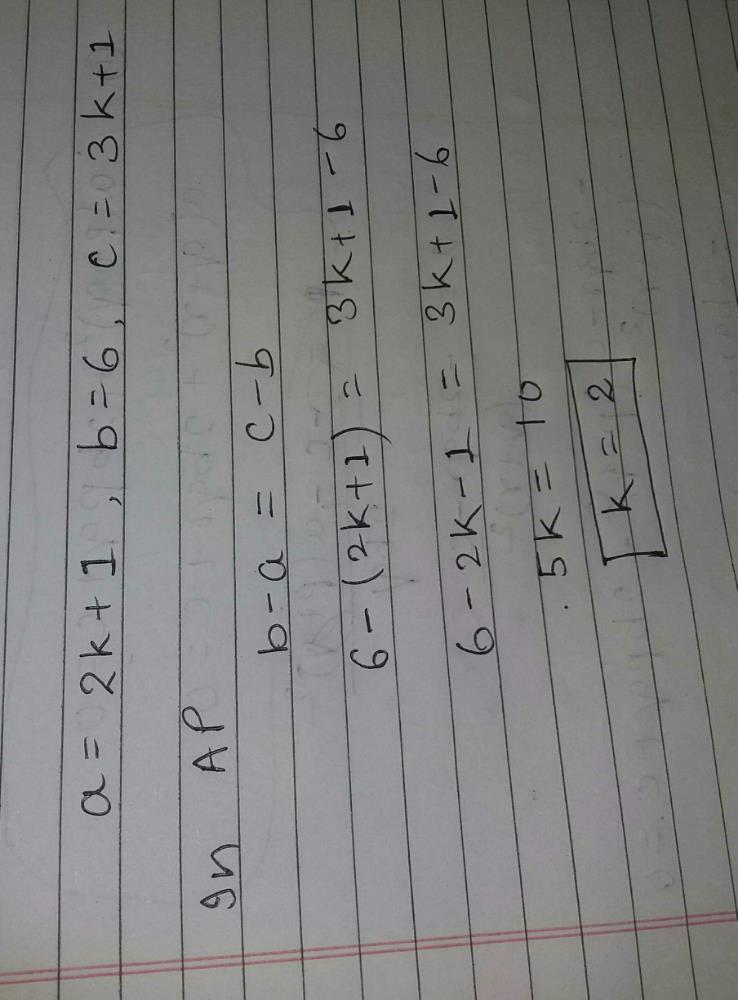 a = 2k+1, b=6, c = 3k+1
In AP
b-a = c-b
6-(2k+1) = 3k+1-6
6-2k-1 = 3k+1-6
5k = 10
k = 2